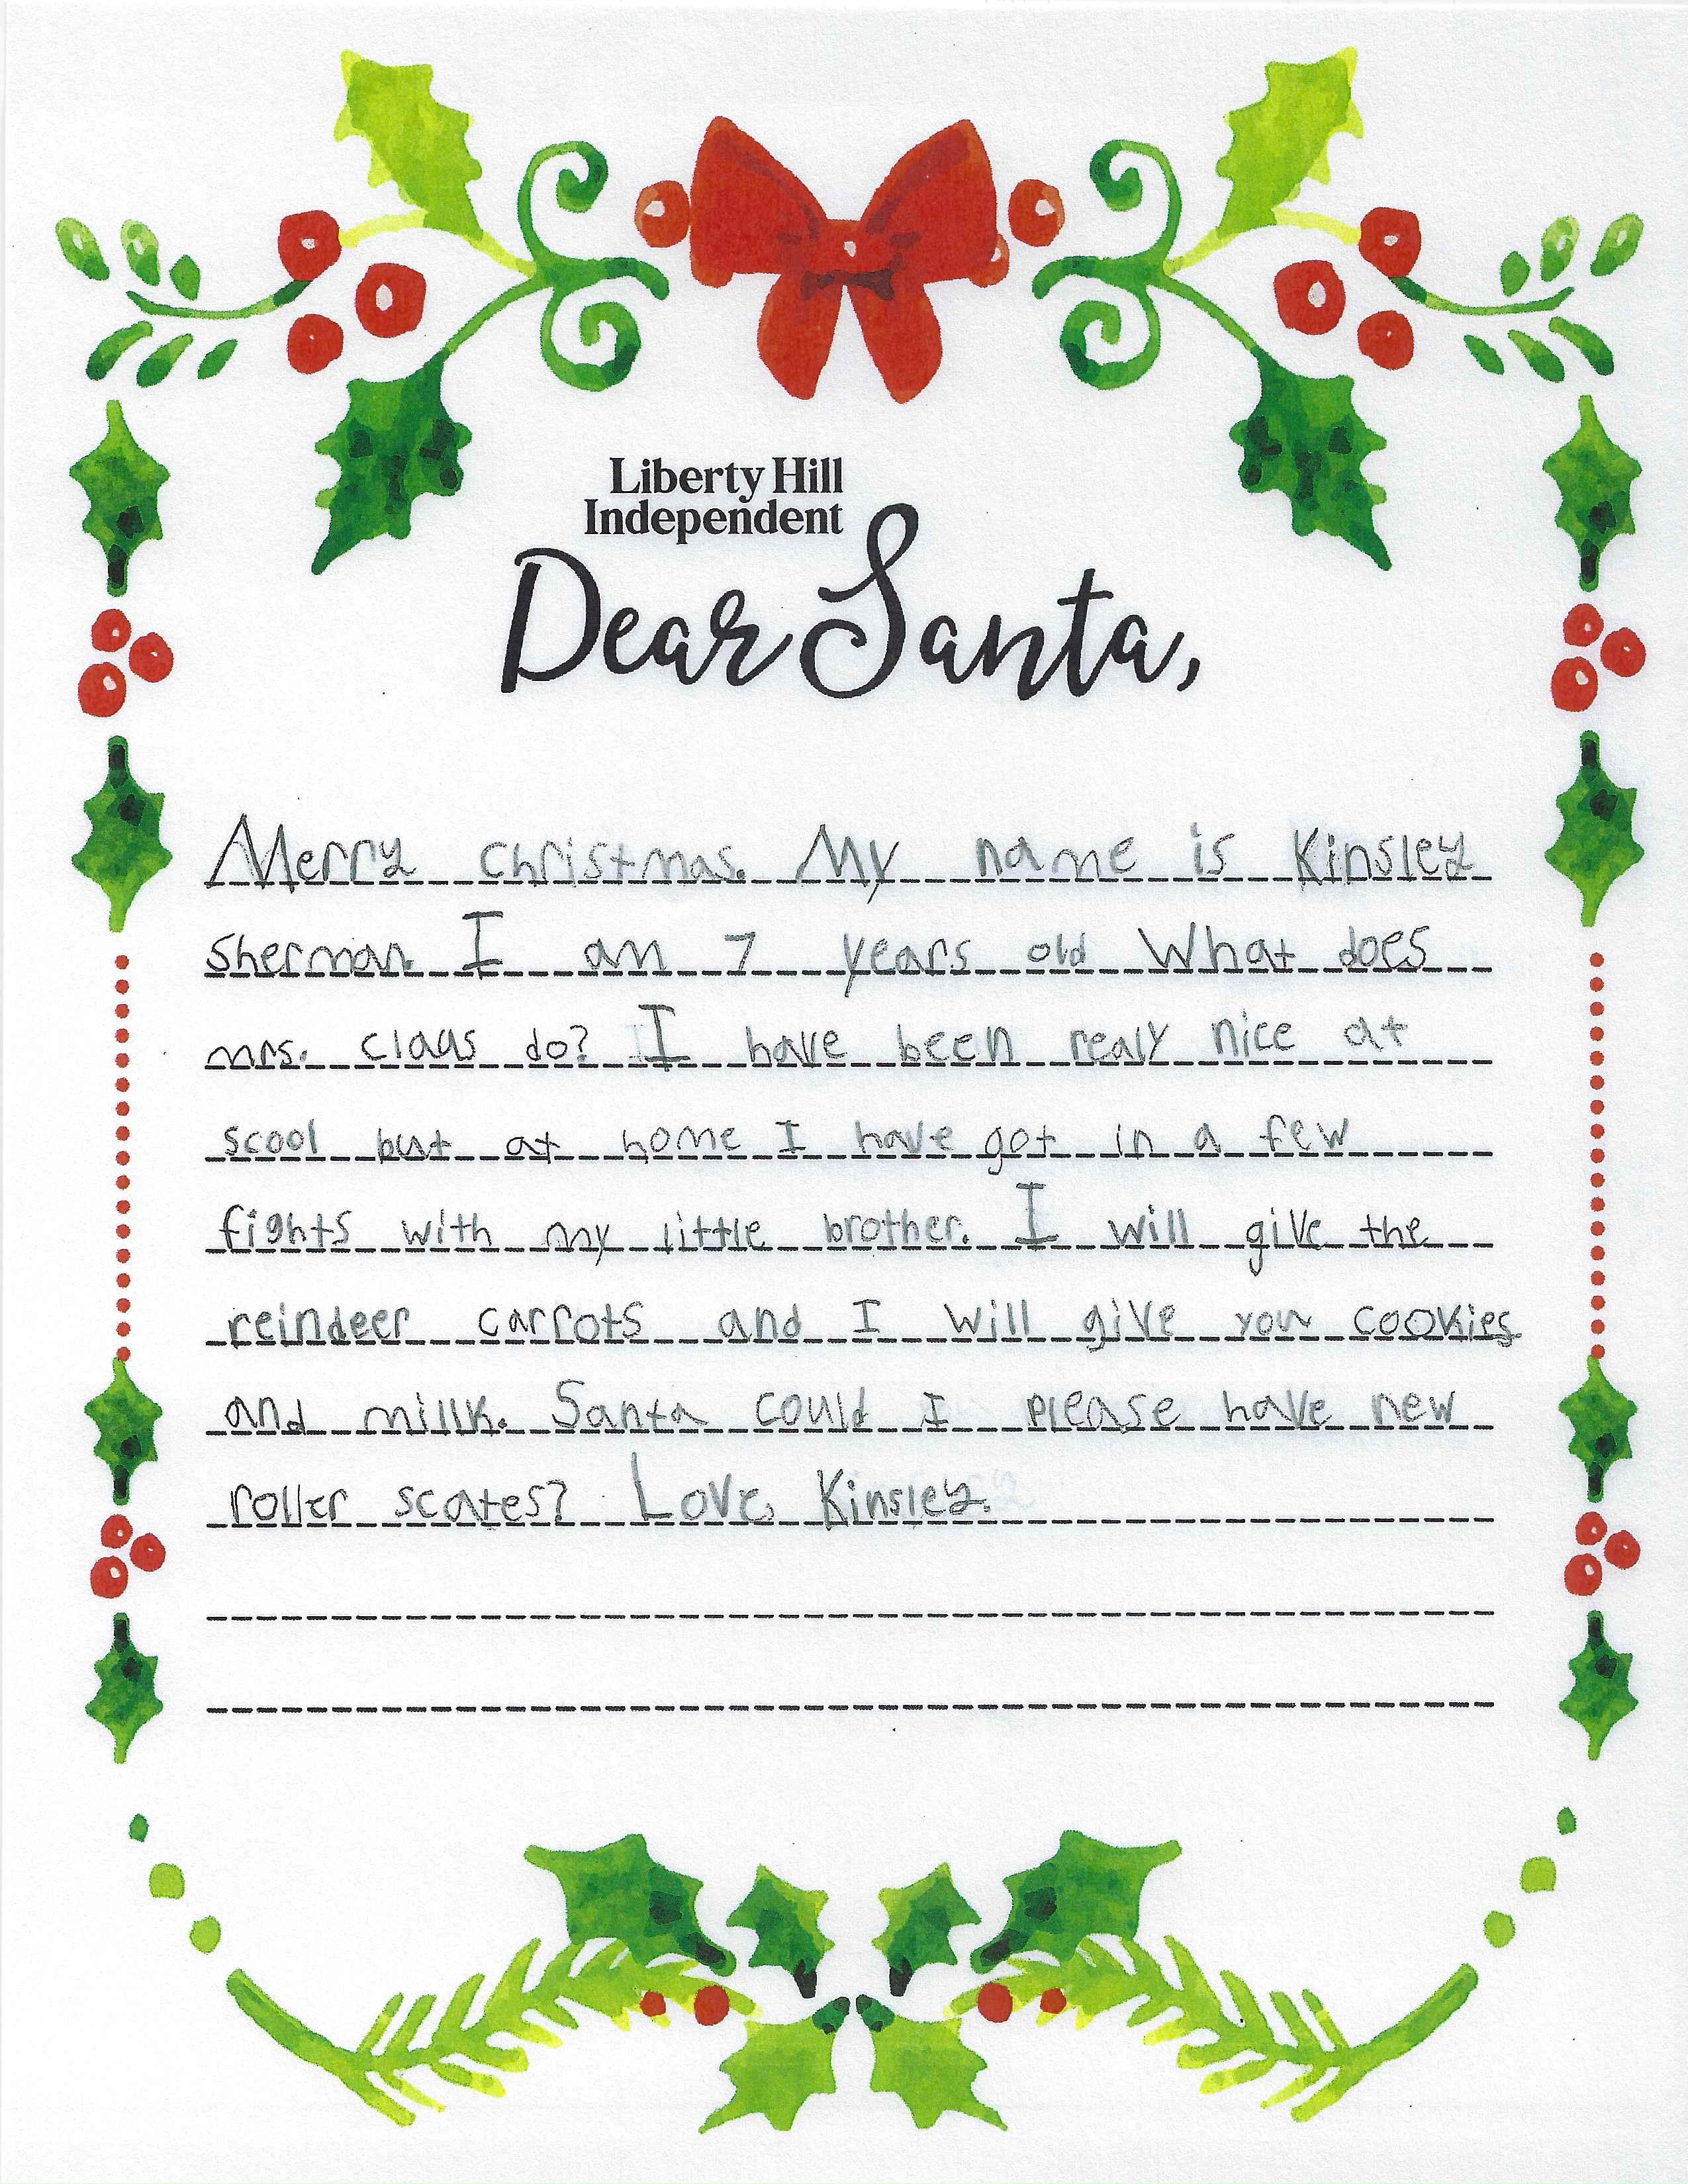 Liberty Hill
Independent
Dear Santa,
Merry christmas. My name is Kinsley
Sherman. I am 7 years old What does
mrs. claas do? I have been realy nice at
scool but at home I have got in a few
fights with my little brother. I will give the
reindeer carrots and I will give you cookies
and millk. Santa could I please have new
roller scates? Love, Kinsley.